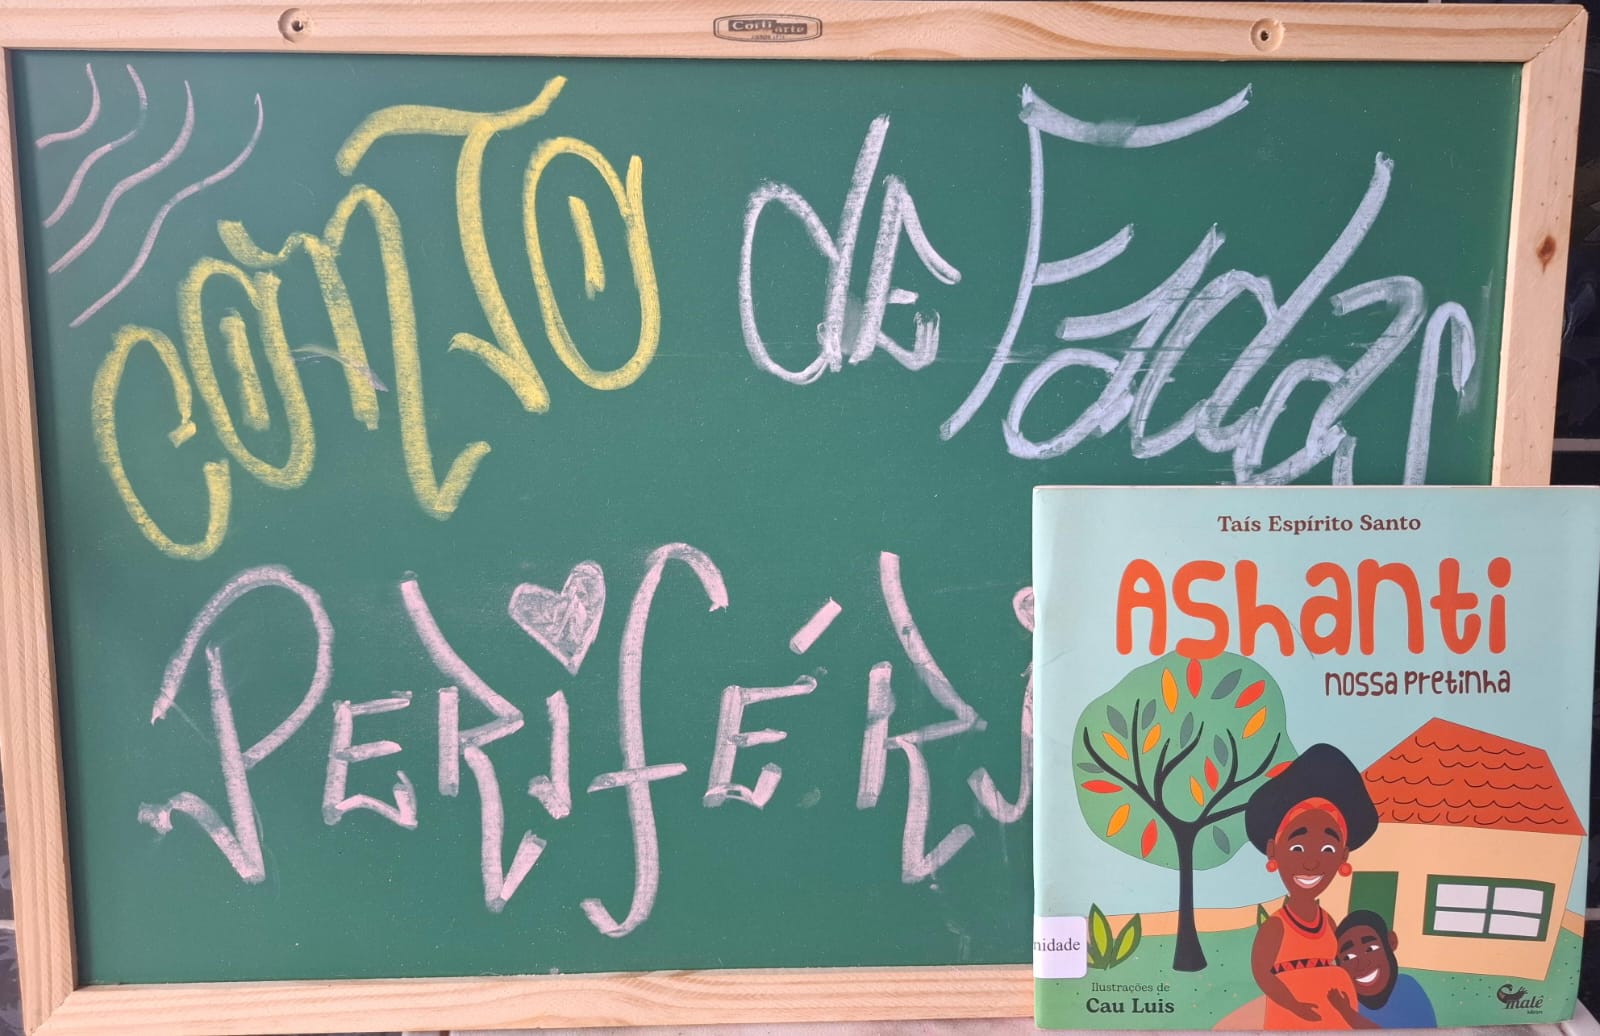 Corti arte
CONTO de Fadas
PERIFÉRi
Taís Espírito Santo
Ashanti
nossa pretinha
nidade
Ilustrações de
Cau Luis
malê